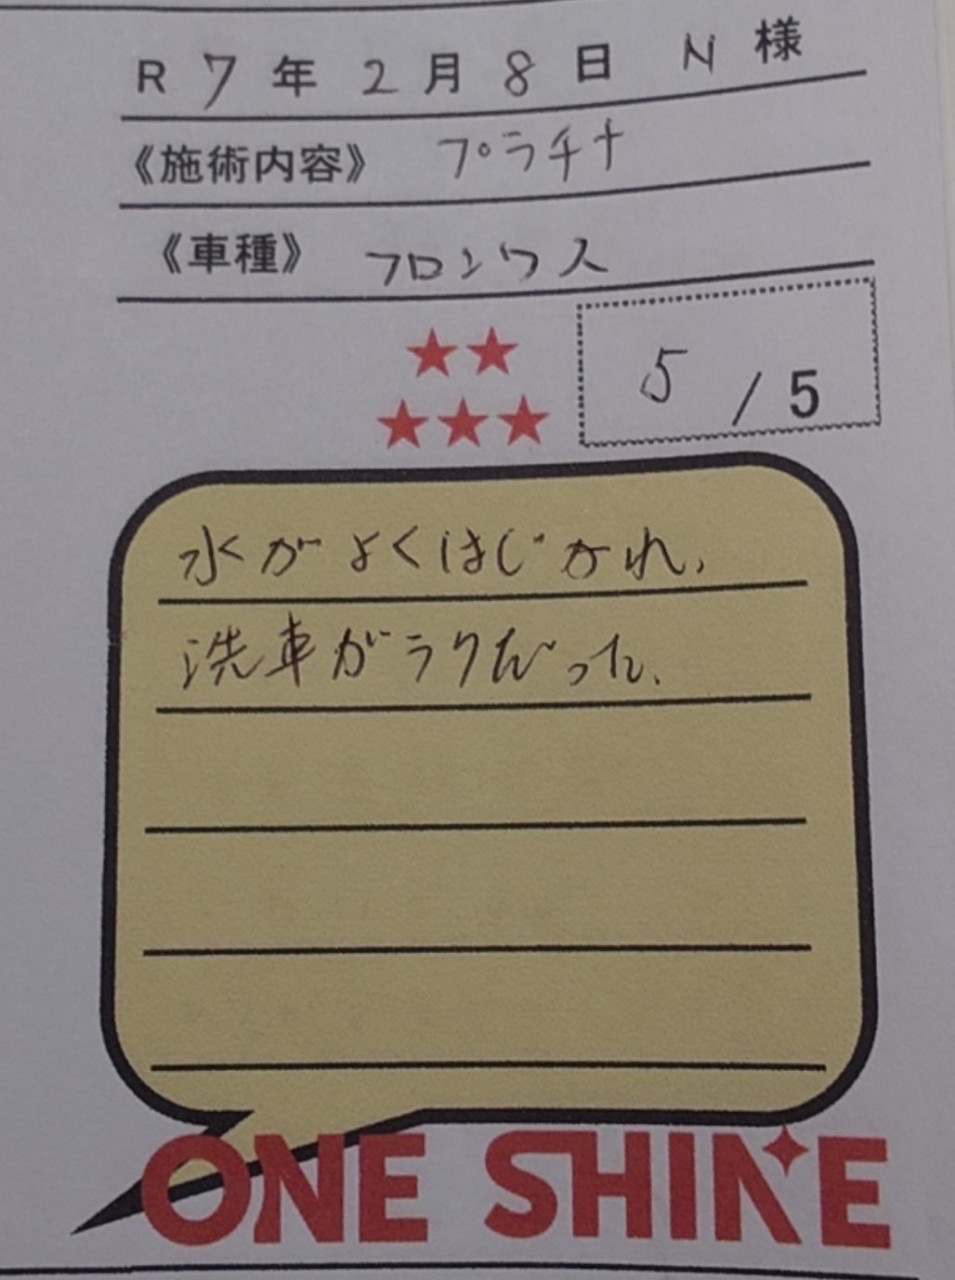 R 7 年 2 月 8 日 N 様
《施術内容》 プラチナ
《車種》 フロンクス
5 / 5
水がよくはじかれ、
洗車がラクだった。
ONE SHINE